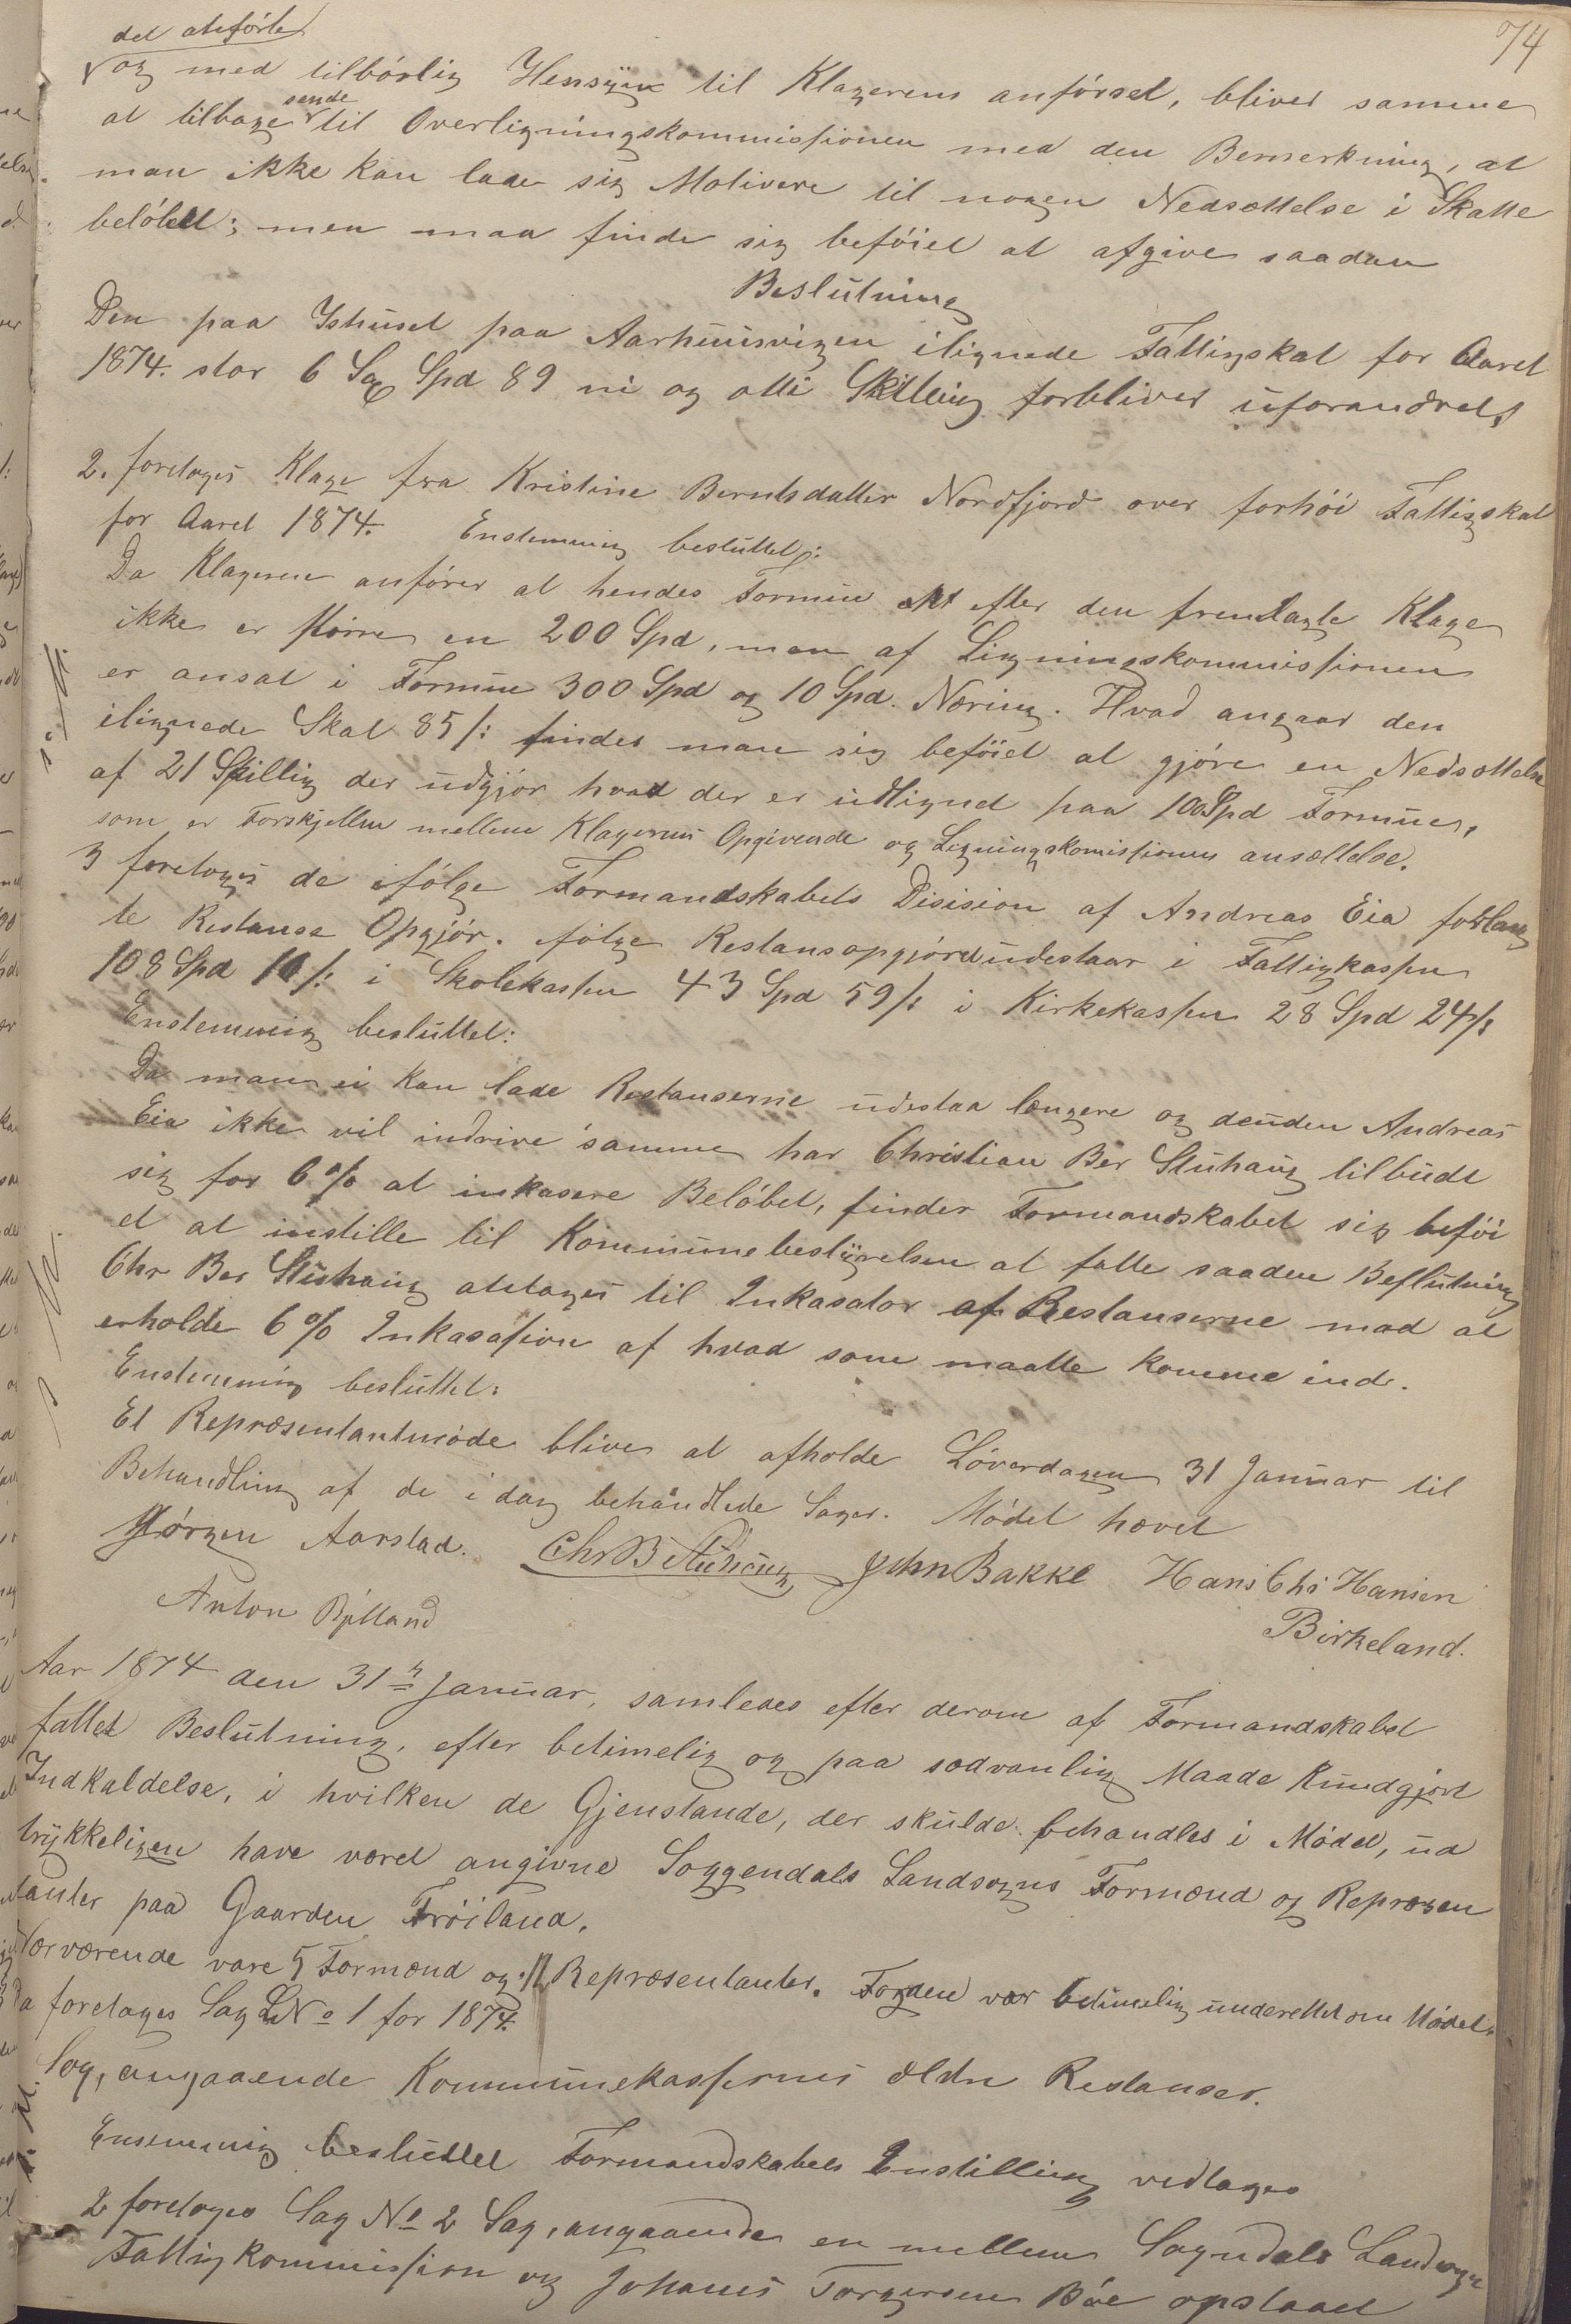 74
det anførte
og med tilbørlig Hensyn til Klagerens anførsel, bliver samme
at tilbage sende til Overligningskommissionen med den Bemerkning, at
man ikke kan lade sig Motivere til nogen Nedsættelse i Skatte
beløbet; men maa finde sig beføiet at afgive saadan
Beslutning
Den paa Ishuset paa Aarhuusvigen ilignede Fattigskat for Aaret
1874. stor 6 Sex Spd 89 ni og otti Skilling forbliver uforandret.
2. foretoges Klage fra Kristine Berntsdatter Nordfjord over forhøi Fattigskat
for Aaret 1874. Enstemmig besluttet:
Da Klageren anfører at hendes Formue efter den fremlagte Klage
ikke er større en 200 Spd, men af Ligningskommissionen
er ansat i Formue 300 Spd og 10 Spd. Næring. Hvad angaar den
ilignede Skat 85 s: findes man sig beføiet at gjøre en Nedsættelse
af 21 Skilling der udgjør hvad der er udlignet paa 100 Spd Formue,
som er Forskjellen mellem Klagerens Opgivende og Ligningskomissionens ansættelse.
3 foretoges de ifølge Formandskabets Disision af Andreas Eia forlang
te Restanse Opgjør. ifølge Restansopgjøret udestaar i Fattigkassen
108 Spd 10 s: i Skolekassen 43 Spd 59 s: i Kirkekassen 28 Spd 24 s:
Enstemmig besluttet:
Da man ei kan lade Restanserne udestaa længere og denden Andreas
Eia ikke vil indrive samme har Christian Ber Stuhaug tilbudt
sig for 6 % at inkasere Beløbet, finder Formandskabet sig beføi
et at instille til Kommunebestyrelsen at fatte saaden Beslutning
Chr Ber Stuhaug antages til Inkasator af Restanserne mod at
erholde 6 % Inkasasion af hvad som maatte komme ind.
Enstemmig besluttet:
Et Repræsentantmøde bliver at afholde Løverdagen 31 Januar til
Behandling af de i dag behandlede Sager. Mødet hævet
Jørgen Aarstad. Chr B Stuhaug John Bakke Hans Chr Hansen
Anton Birkeland.
Aar 1874 den 31te Januar, samledes efter derom af Formandskabet
fattet Beslutning, efter betimelig og paa sædvanlig Maade Kundgjort
Indkaldelse, i hvilken de Gjenstande, der skulde behandles i Mødet, ud
trykkeligen have været angivne Soggendals Landsogns Formænd og Repræsen
tanter paa Gaarden Frøiland.
Nærværende vare 5 Formænd og 12 Repræsentanter. Fogden var betimelig underettet om Mødet.
Da foretoges Sag No 1 for 1874.
Sag, angaaende Kommunekassernes ældre Restanser.
Enstemmig besluttet Formandskabets Instilling vedtages
2 foretoges Sag No 2 Sag, angaaende en mellem Sogndals Landsogns
Fattigkommission og Johanes Torgersen Bøe opstaaet